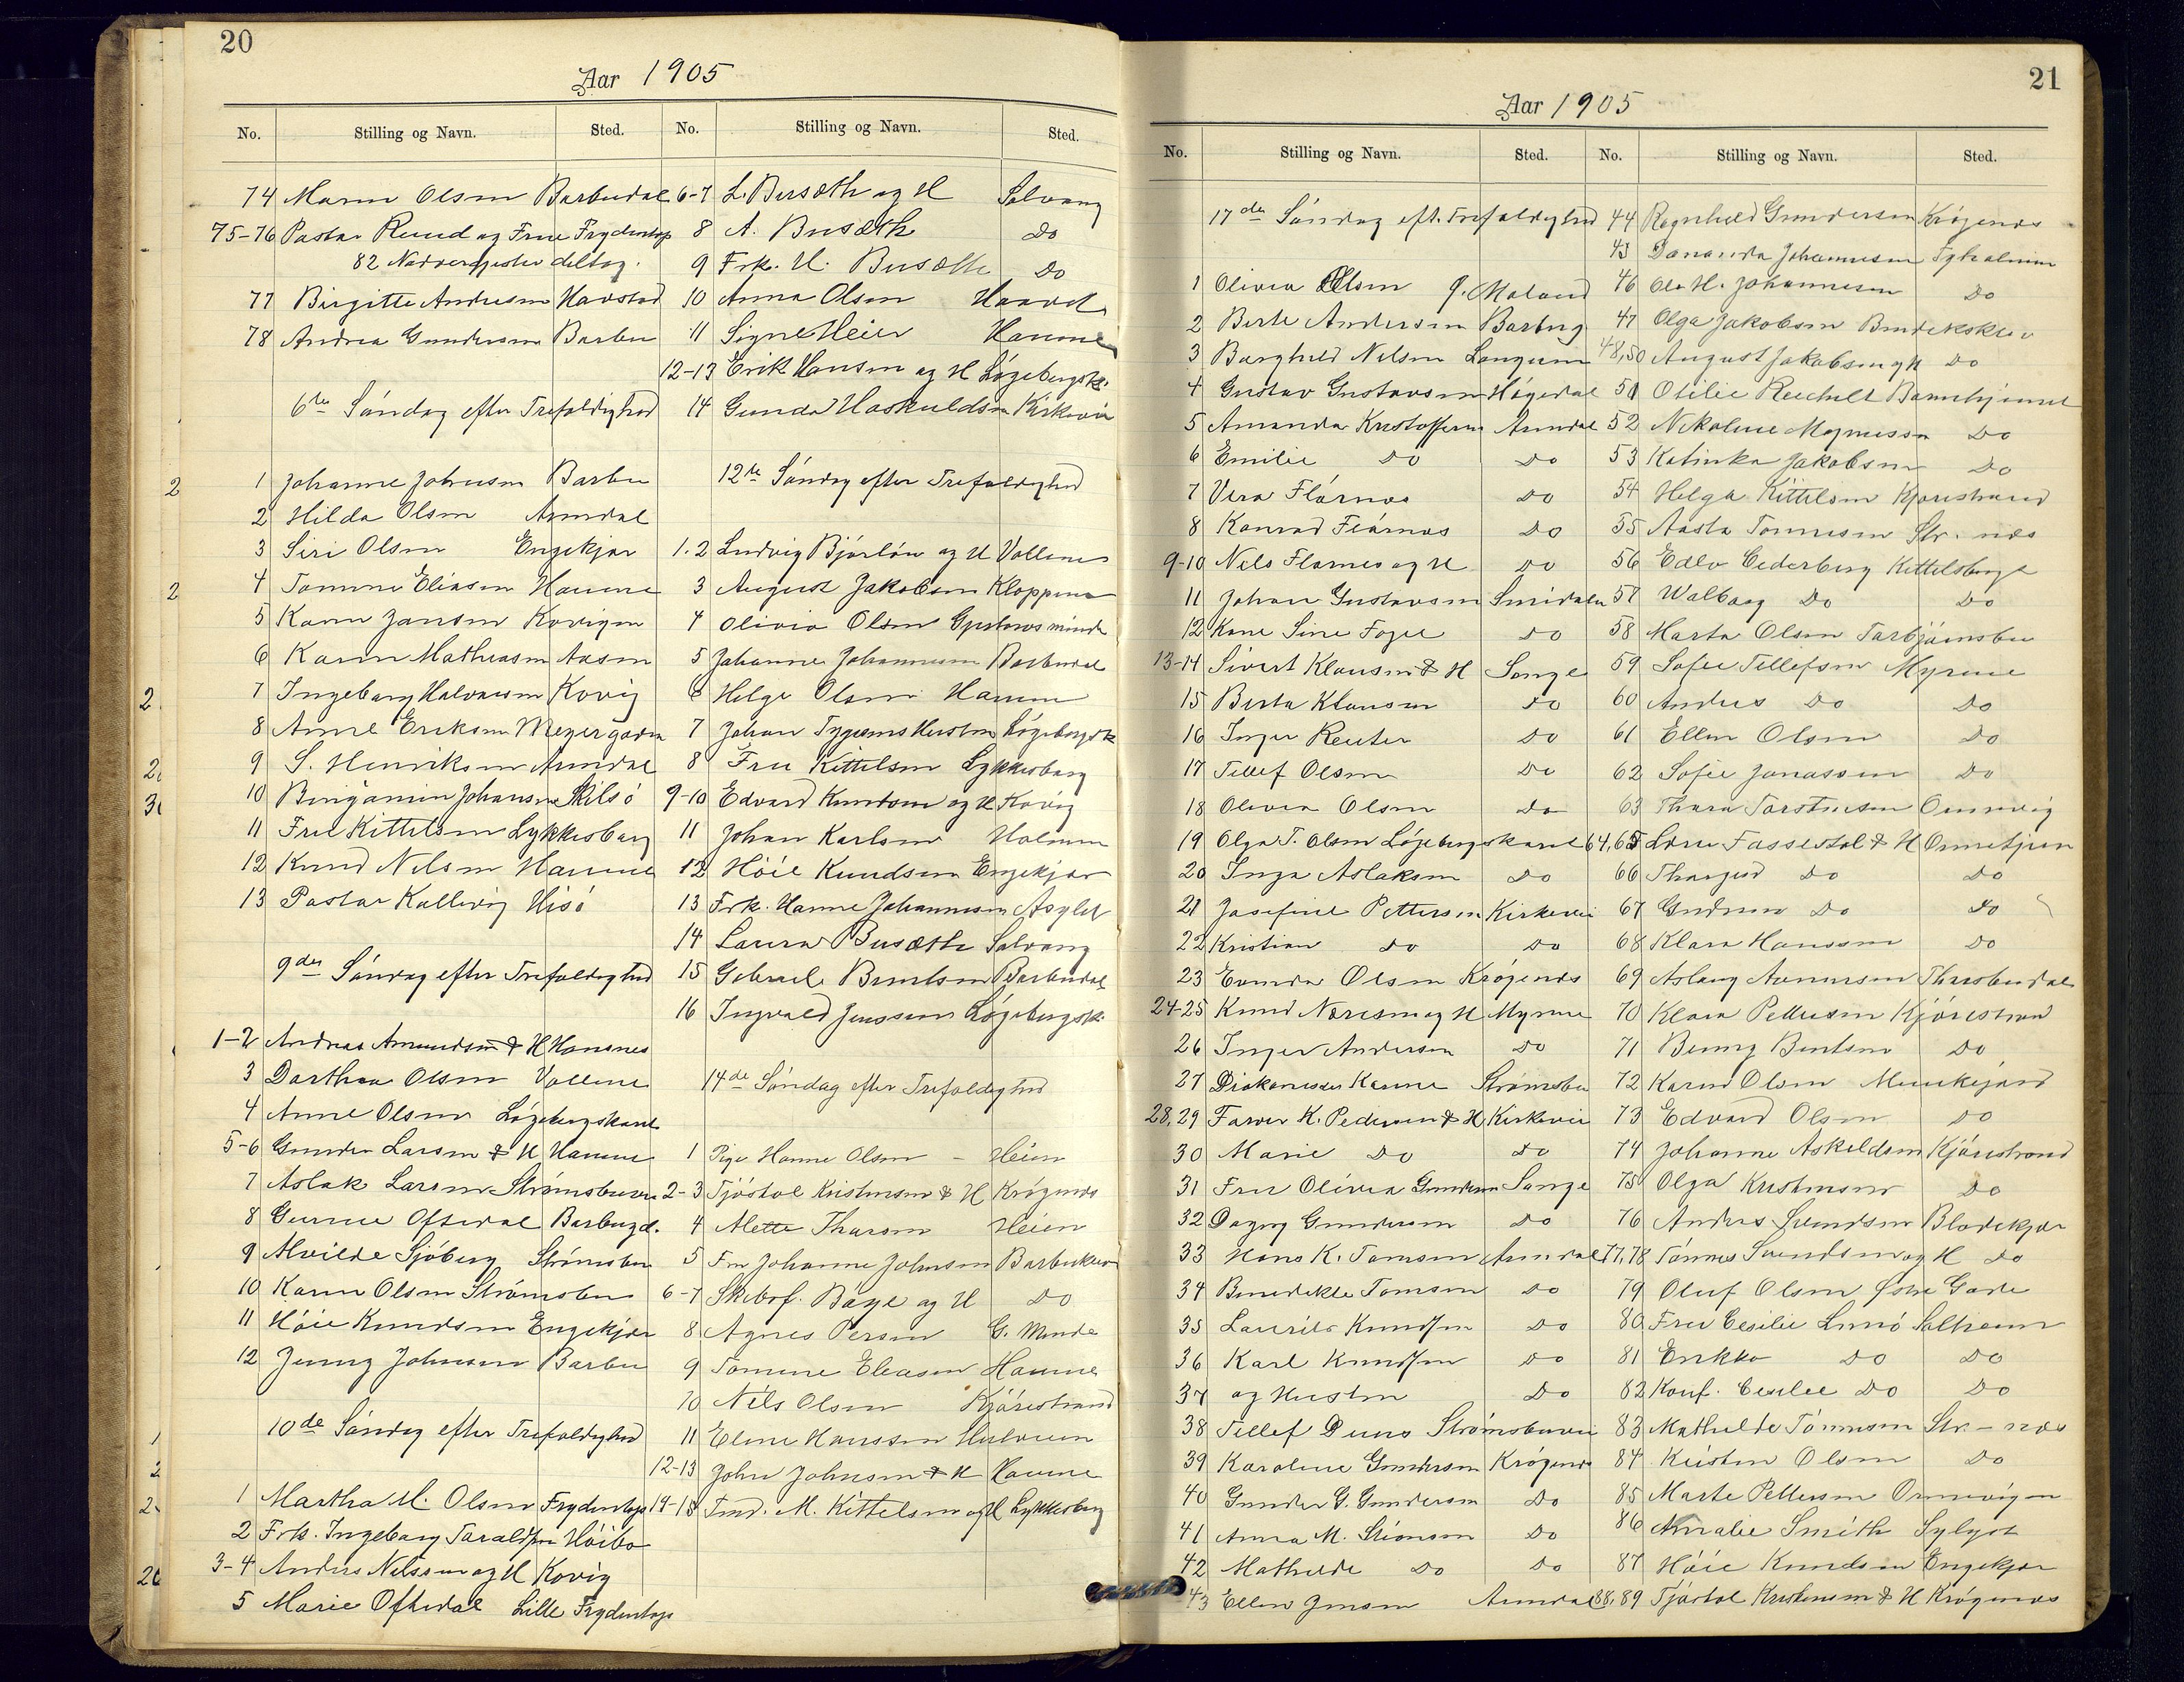 20
Aar 1905
No. Stilling og Navn. Sted.
74 Maren Olsen Barbudal
75-76 Pastor Ruud og Frue Frydentop
82 Nadvergjester deltog.
77 Birgitte Andresen Havstad
78 Andrea Gundersen Barbu
6te Søndag efter Trefoldighed
1 Johanne Johnsen Barbu
2 Hilda Olsen Arendal
3 Siri Olsen Engekjær
4 Tomine Eliasen Hamme
5 Karen Jansen Kovigen
6 Karen Mathiasen Aasen
7 Ingeborg Halvorsen Kovig
8 Anne Eriksen Meyergaden
9 S. Henriksen Arendal
10 Bengamin Johansen Skilsø
11 Fru Kittelsen Lykkesborg
12 Knud Nilsen Hamme
13 Pastor Kallevig Hisø
9de Søndag efter Trefoldighed
1-2 Andreas Amundsen & H Hansnes
3 Darthea Olsen Vollene
4 Anne Olsen Løgebergskaret
5-6 Gunder Larsen & H Hamme
7 Aslak Larsen Strømsbuveien
8 Gunne Oftedal Barbugd.
9 Alvilde Sjøberg Strømsbu
10 Karen Olsen Strømsbu
11 Høie Knudsen Engekjær
12 Jenny Johnsen Barbu
10de Søndag efter Trefoldighed
1 Martha M. Olsen Frydentop
2 Frk. Ingeborg Taraldsen Høibo
3-4 Anders Nilsen og H Kovig
5 Marie Oftedal Lille Frydentop
No. Stilling og Navn. Sted.
6-7 L. Busæth og H Solvang
8 A. Busæth Do
9 Frk. H. Busæth Do
10 Anna Olsen
11 Signe Heier Hamme
12-13 Erik Hansen og H Løgebergsk.
14 Gunda Haskuldsen Kirkevei
12te Søndag efter Trefoldighed
1.2 Ludvig Bjørløw og H Vollene
3 August Jakobsen Kloppene
4 Olivia Olsen Gustavsminde
5 Johanne Johannesen Barbudal
6 Helge Olsen Hamme
7 Johan Hustru Løgebergsk
8 Fru Kittelsen Lykkesborg
9-10 Edvard Knudsen og H Kovig
11 Johan Karlsen Holmen
12 Høie Knudsen Engekjær
13 Frk. Hanne Johannesen Asylet
14 Laura Busæth Solvang
15 Gebriele Berntsen Barbudal
16 Ingvald Jenssen Løgebergsk.
14de Søndag efter Trefoldighed
1 Pige Hanne Olsen - Heien
2-3 Tjøstol Kristensen & H Krøgenes
4 Alette Tharsen Heien
5 Fru Johanne Johnsen Barbukleven
6-7 Skibsf. Bøye og H Do
8 Agnes Persen G. Minde
9 Tomine Eleasen Hamme
10 Nils Olsen Kjørestrand
11 Eline Hanssen
12-13 John Johnsen & H Hamme
14-15 M. Kittelsen og H Lykkesborg
21
Aar 1905
No. Stilling og Navn. Sted.
17de Søndag eft. Trefoldighed
1 Olivia Olsen Ø. Moland
2 Berte Andersen Barbu
3 Borghild Nilsen Langum
4 Gustav Gustavsen Høgedal
5 Amanda Kristoffersen Arendal
6 Emilie Do Do
7 Vera Flørnæs Do
8 Konrad Flørnæs Do
9-10 Nils Flørnes og H Do
11 Johan Gustavsen Smidalen
12 Kone Sine Fogee Do
13-14 Sivert Klausen & H Songe
15 Berta Klausen Do
16 Inger Reuter Do
17 Tellef Olsen Do
18 Olivia Olsen Do
19 Olga T. Olsen Løgebergskaret
20 Inga Aslaksen Do
21 Josefine Pettersen Kirkevei
22 Kristian Do Do
23 Evinda Olsen Krøgenes
24-25 Knud Næresen og H Myrene
26 Inger Andersen Do
27 Diakonisse Karine Strømsbu
28,29 Farver K. Pedersen & H Kirkevei
30 Marie Do Do
31 Fru Olivia Gundersen Songe
32 Dagny Gundersen Do
33 Hans K. Tomsen Arendal
34 Benedikte Tomsen Do
35 Laurits Knudsen Do
36 Karl Knudsen Do
37 og Hustru Do
38 Tellef Duus Strømsbuvei
39 Karoline Gundersen Krøgenes
40 Gunder G. Gundersen Do
41 Anna M. Do
42 Mathilde Do Do
43 Ellen Jensen Arendal
No. Stilling og Navn. Sted.
44 Ragnhild Gundersen Krøgenes
45 Johannesen
46 Ole H. Johannesen Do
47 Olga Jakobsen Bendiksklev
48,50 August Jakobsen og H Do
51 Otilie Reichelt Barnehjemmet
52 Nikoline Magnussen Do
53 Katinka Jakobsen Do
54 Helga Kittelsen Kjørestrand
55 Aasta Tonnesen Str. næs
56 Cederberg Kittelsberget
57 Walborg Do Do
58 Marta Olsen Tarbjørnsbu
59 Sofie Tellefsen Myrene
60 Anders Do Do
61 Ellen Olsen Do
62 Sofie Jonassen Do
63 Thara Torstensen Ormevig
64,65 Fossestøl & H Ormetjern
66 Thargerd Do Do
67 Gudrun Do Do
68 Klara Hanssen Do
69 Aslaug Avnersen Tharsbudal
70 Klara Pettersen Kjørestrand
71 Benny Bentsen Do
72 Karen Olsen Munkejord
73 Edvard Olsen Do
74 Johanne Askildsen Kjørestrand
75 Olga Kristensen Do
76 Anders Svendsen Blødekjær
77,78 Tønnes Svendsen og H Do
79 Oluf Olsen Østre Gade
80 Fru Cesilie Lunø Solheim
81 Enkko Do Do
82 Konf. Cesilie Do Do
83 Mathilde Tønnesen Str - næs
84 Kristen Olsen Do
85 Marte Pettersen Ormevigen
86 Amalie Smith
87 Høie Knudsen Engekjær
88,89 Tjøstol Kristensen & H Krøgenæs